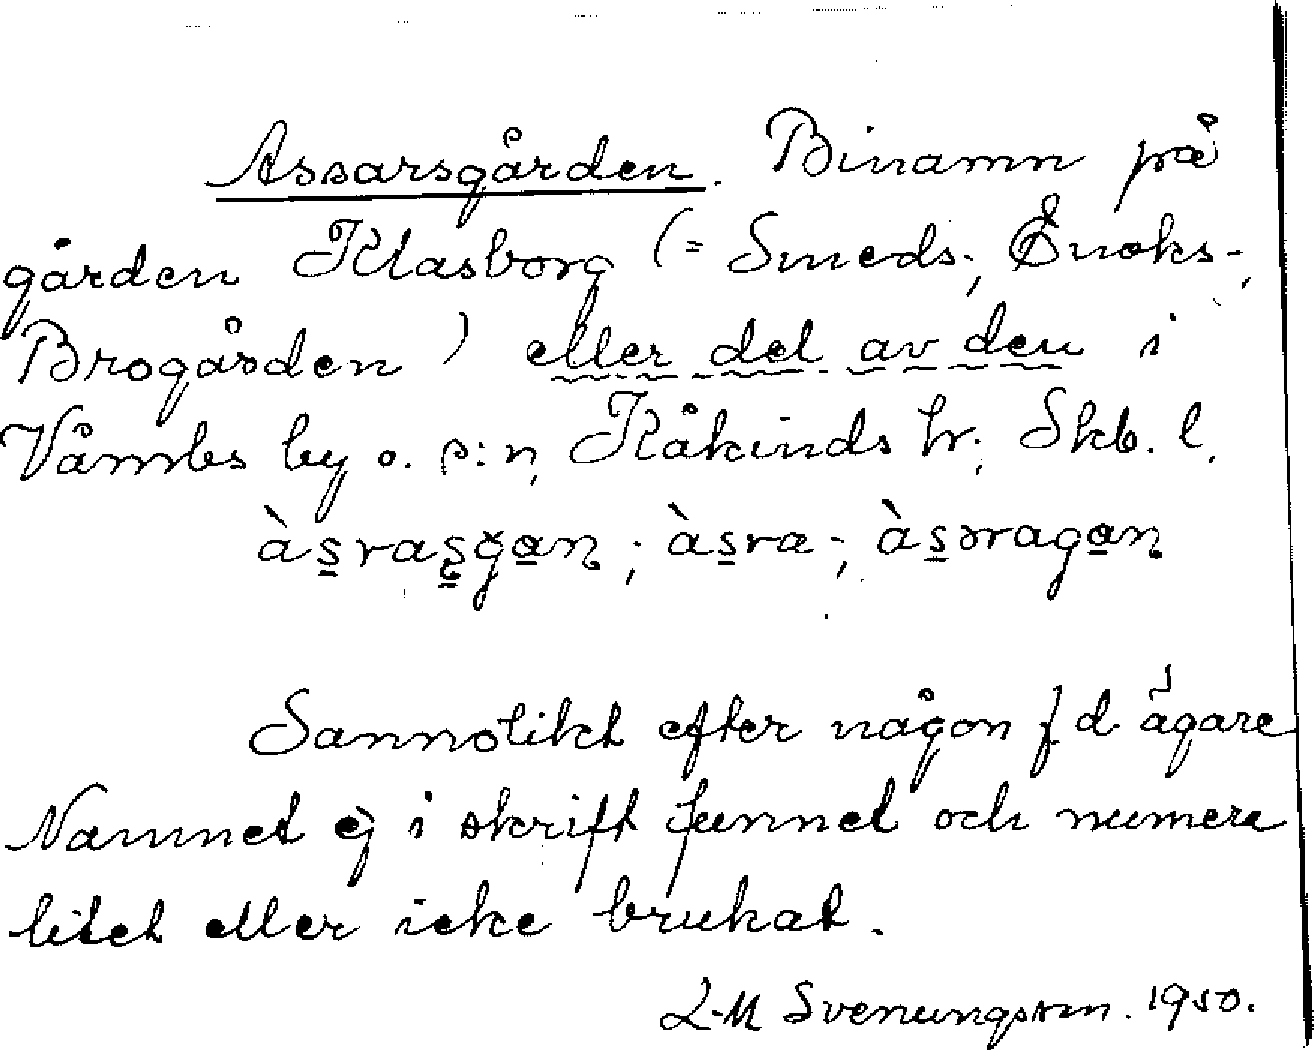 Assarsgården. Binamn på
gården Klasborg (= Smeds-, Enoks-,
Brogården) eller del av den i
Våmbs by o. s:n, Kåkinds hr, Skb. l.
àsrasgan ; àsra-; àsəragan
Sannolikt efter någon f d ägare
Namnet ej i skrift funnet och numera
litet eller icke brukat.
L-M Svenungsson. 1950.